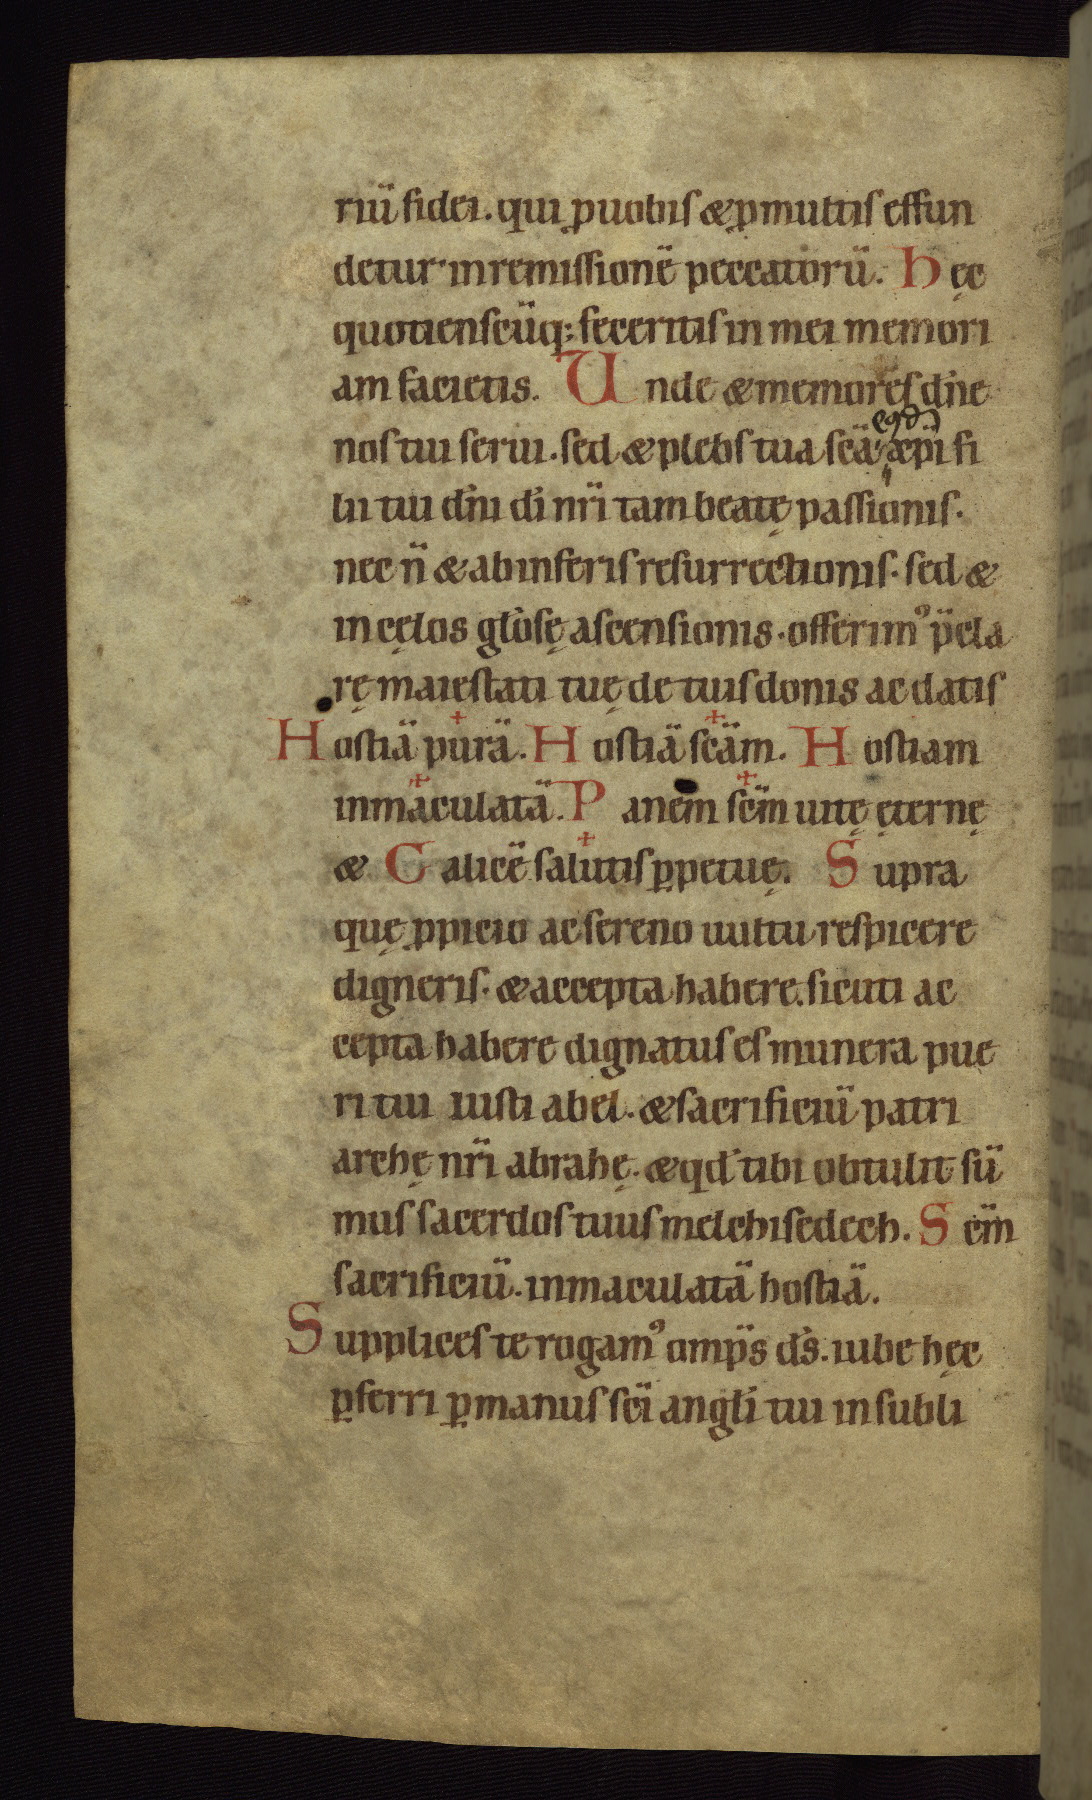 riū fidei. qui ꝓ uobis & ꝑ multis effun
detur in remissionē peccatorū. Hęc
quotienscūq; feceritis in mei memori
am facietis. Unde & memores dn̄e
nos tui serui. sed & plebs tua scā xp̄i fi
lii tui dn̄i dī nr̄i tam beatę passionis.
nec n̄ & ab inferis resurrectionis. sed &
in cęlos gl̄osę ascensionis. offerimꝰ p̄cla
rę maiestati tuę de tuis donis ac datis
Hostiā purā. Hostiā scām. Hostiam
inmaculatā. Panem scm̄ uitę ęternę
& Calicē salutis ꝑpetuę. Supra
quę ꝓpicio ac sereno uultu respicere
digneris. & accepta habere. sicuti ac
cepta habere dignatus es munera pue
ri tui iusti abel. & sacrificiū patri
archę nr̄i abrahę. & qd̄ tibi obtulit sū
mus sacerdos tuus melchisedech. Scm̄
sacrificiū. inmaculatā hostiā.
Supplices te rogamꝰ omp̄s ds̄. iube hęc
ꝑferri ꝑ manus scī angl̄i tui in subli